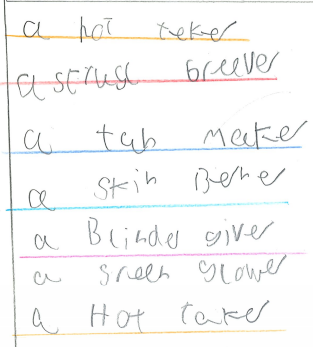 a hot teker
a strust breever
a tan maker
a skin Berner
a Blinder giver
a sneen glower
a Hot taker